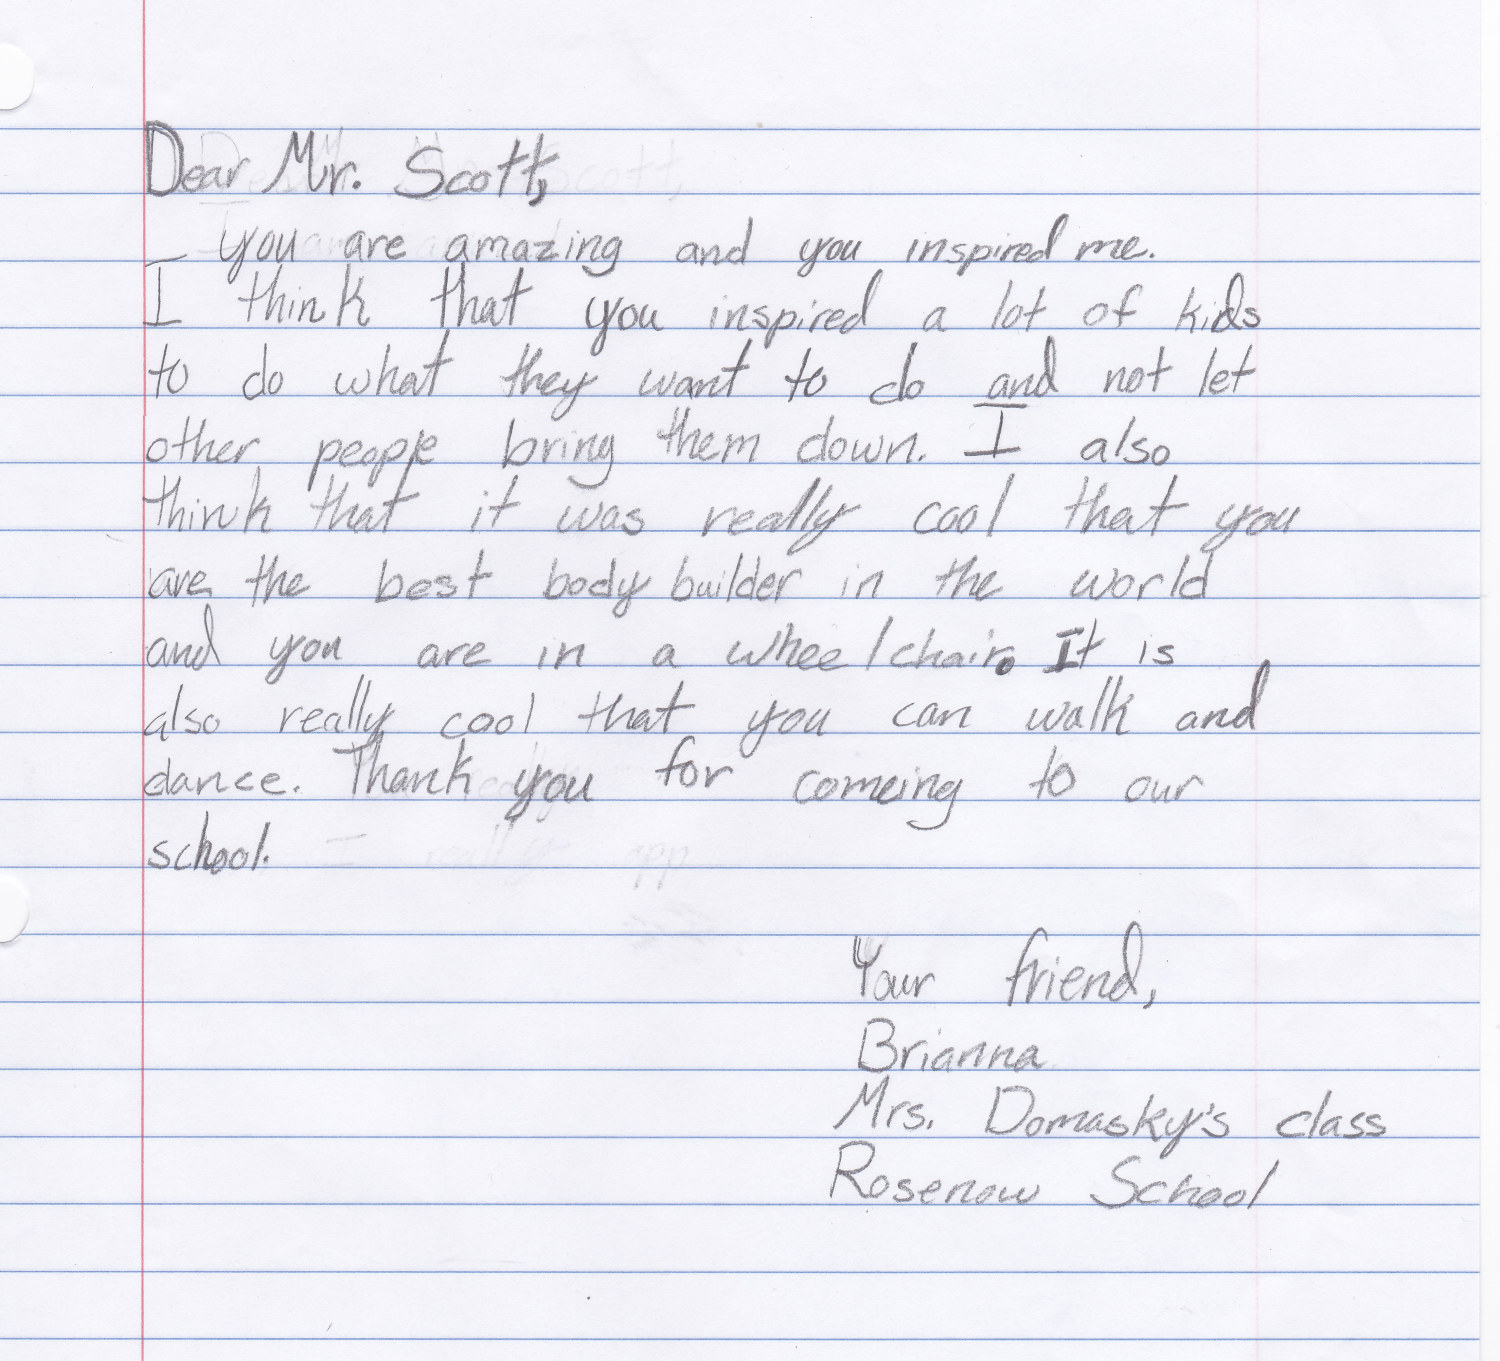 Dear Mr. Scott,
you are amazing and you inspired me.
I think that you inspired a lot of kids
to do what they want to do and not let
other people bring them down. I also
think that it was really cool that you
are the best body builder in the world
and you are in a wheelchair. It is
also really cool that you can walk and
dance. Thank you for comeing to our
school.
Your friend,
Brianna
Mrs. Domasky's class
Rosenow School